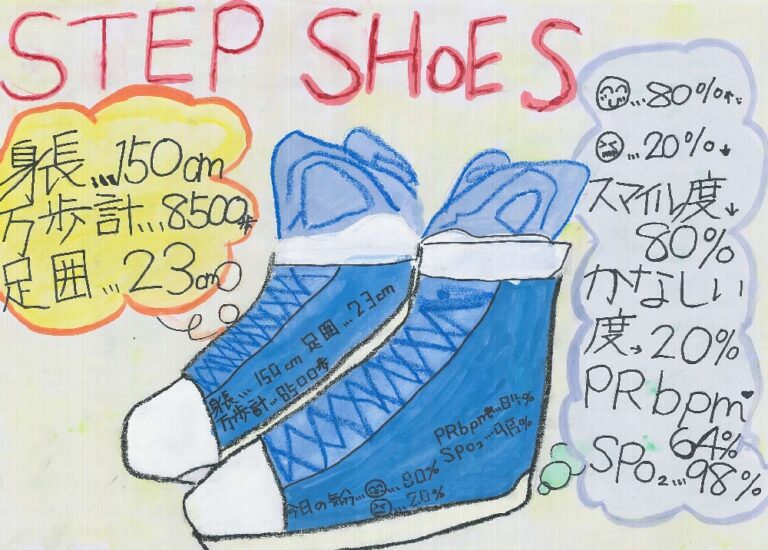 STEP SHOES
身長...150cm
万歩計...8500歩
足囲...23cm
😊...80%↑
😖...20%↓
スマイル度↓
80%
かなしい
度→20%
PRbpm♥
64%
SPO₂...98%
身長...150cm 足囲...23cm
万歩計...8500歩
PRbpm♥...84%
SPO₂...98%
今日の気分...😊...80%
😖...20%